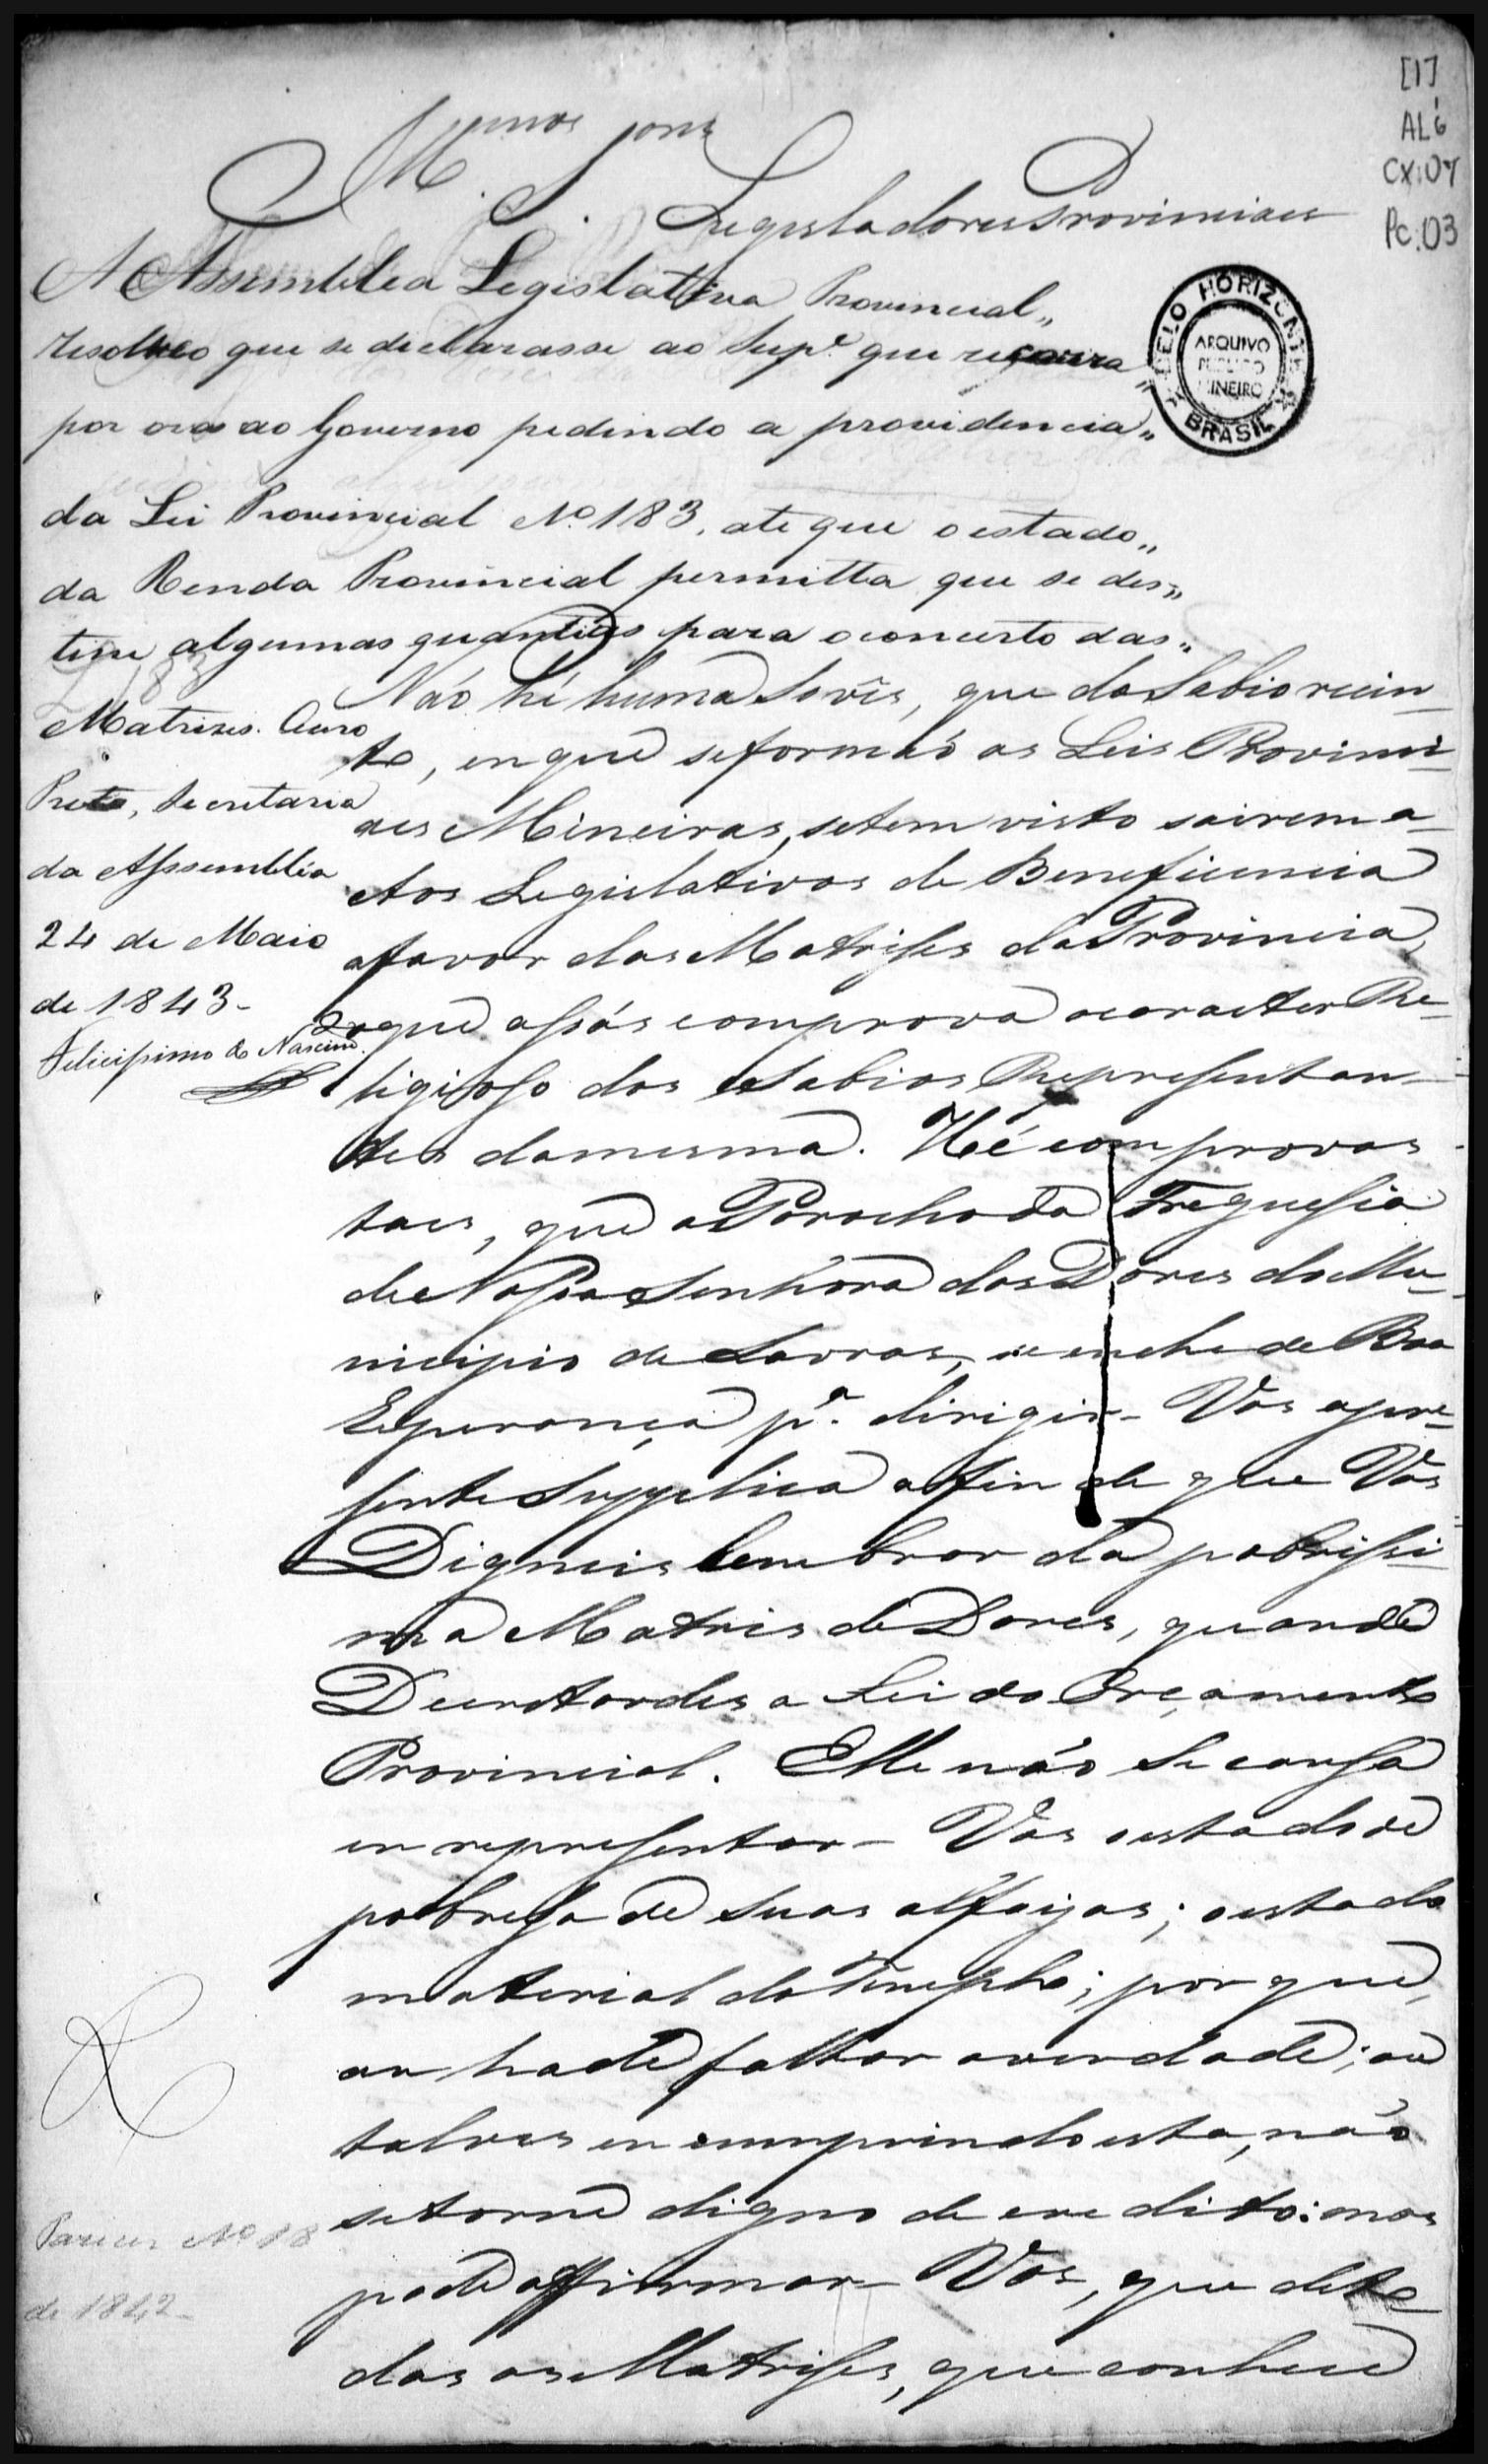 [1]
AL 6
CX: 07
Pc: 03
M.mos S.ores
Legisladores Provinciaes
A Assemblea Legislativa Provincial„
resolveo que se declarasse ao Sup.e que recorra„
por ora ao Governo pedindo a providencia„
da Lei Provincial Nº 183, ate que o estado„
da Renda Provincial permitta que se des„
tine algumas quantias para o concerto das„
Matrizes. Ouro
Preto, Secretaria
da Assembléa
24 de Maio
de 1843-
Felicissimo do Nascim.
BELO HORIZONTE
ARQUIVO
PUBLICO
MINEIRO
BRASIL
Não hé huma só vês, que do Sabio recin-
to, em que se formão as Leis Provinci-
aes Mineiras, se tem visto sairem a-
ctos Legislativos de Beneficencia
a favor das Matrises da Provincia,
o que assás comprova o caracter Re-
ligioso dos Sabios Representan-
tes da mesma. Hé com provas
taes, que o Parocho da Freguesia
de Nossa Senhora das Dores do Mu-
nicipio de Lavras, se enche de Boa
Esperança p.a dirigir- Vos a pre-
sente Supplica a fim de que Vos
Digneis lembrar da pobrissi-
ma Matris de Dores, quando
Decretardes a Lei do Orçamento
Provincial. Elle não se cansa
em representar- Vos o estado de
pobresa de suas alfaias; o estado
material do Templo; por que,
ou hade faltar a verdade; ou
talves em cumprindo esta, não
se torne digno de credito: mas
pode affirmar- Vos, que de to-
das as Matrises, que conhece
Parecer Nº 18
de 1842-